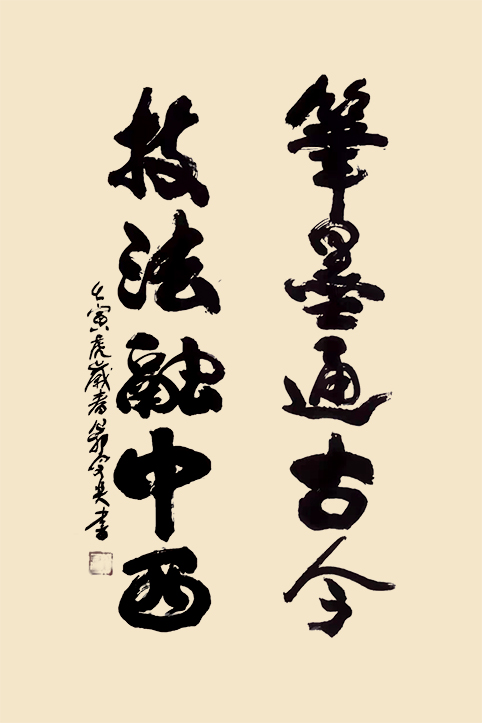 筆墨通古今
技法融中西
壬寅虎歲春